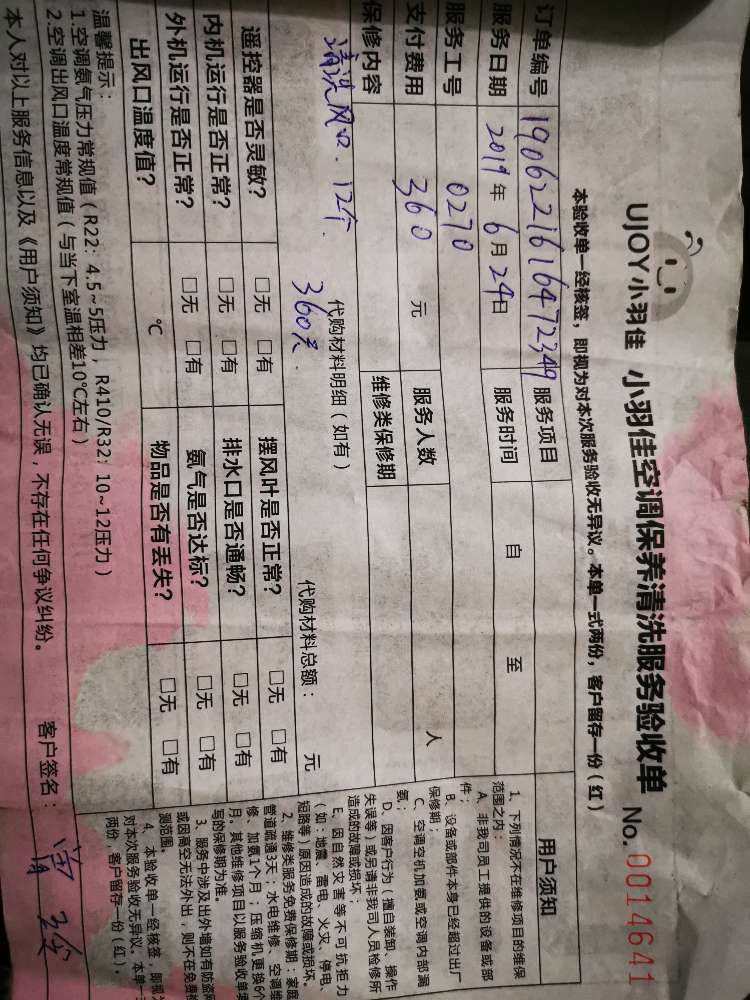 UJOY小羽佳 小羽佳空调保养清洗服务验收单 No. 0014641
本验收单一经核签，即视为对本次服务验收无异议。本单一式两份，客户留存一份（红）
订单编号 1906221616472349 服务项目
服务日期 2019年6月24日 服务时间 自 至
服务工号 0270 服务人数 人
支付费用 360 元 维修类保修期
保修内容
代购材料明细（如有）
清洗风口.12个. 360元.
代购材料总额： 元
遥控器是否灵敏？ □无 □有 摆风叶是否正常？ □无 □有
内机运行是否正常？ □无 □有 排水口是否通畅？ □无 □有
外机运行是否正常？ □无 □有 氨气是否达标？ □无 □有
出风口温度值？ ℃ 物品是否有丢失？ □无 □有
温馨提示：
1.空调氨气压力常规值（R22：4.5~5压力，R410/R32：10~12压力）
2.空调出风口温度常规值（与当下室温相差10℃左右）
本人对以上服务信息以及《用户须知》均已确认无误，不存在任何争议纠纷。 客户签名：
用户须知
1、下列情况不在维修项目的维保
范围之内：
A、非我司员工提供的设备或部
件；
B、设备或部件本身已经超过出厂
保修期；
C、空调空机加氨或空调内部漏
氨；
D、因客户行为（擅自装卸、操作
失误等）或另请非我司人员检修所
造成的故障或损坏；
E、因自然灾害等不可抗拒力
（如：地震、雷电、火灾、停电、
短路等）原因造成的故障或损坏。
2、维修类服务免费保修期：家庭
管道疏通3天；水电维修、空调维
修、加氨1个月；压缩机更换6个
月。其他维修项目以服务验收单
写的保修期为准。
3、服务中涉及出外墙如有防盗网
或因高空无法外出，则不在免费检
测范围。
4、本验收单一经核签，即视为
对本次服务验收无异议。本单一
两份，客户留存一份（红）